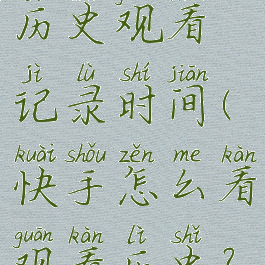 历史观看
jì lù shí jiān
记录时间(
kuài shǒu zěn me kàn
快手怎么看
guān kàn lì shǐ
观看历史?